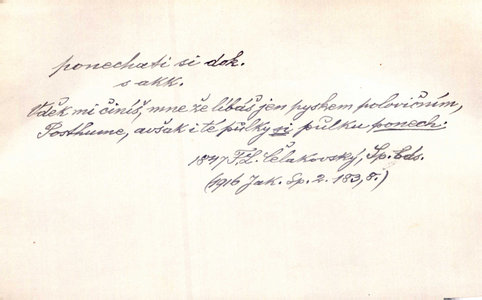 ponechati si dok.
s akk.
Vděk mi činíš, mne že líbáš jen pyskem polovičním,
Posthume, avšak i té půlky si půlku ponech.
1847 F. L. Čelakovský, Sp. bás.
(1916 Jak. Sp. 2. 183, 8.)